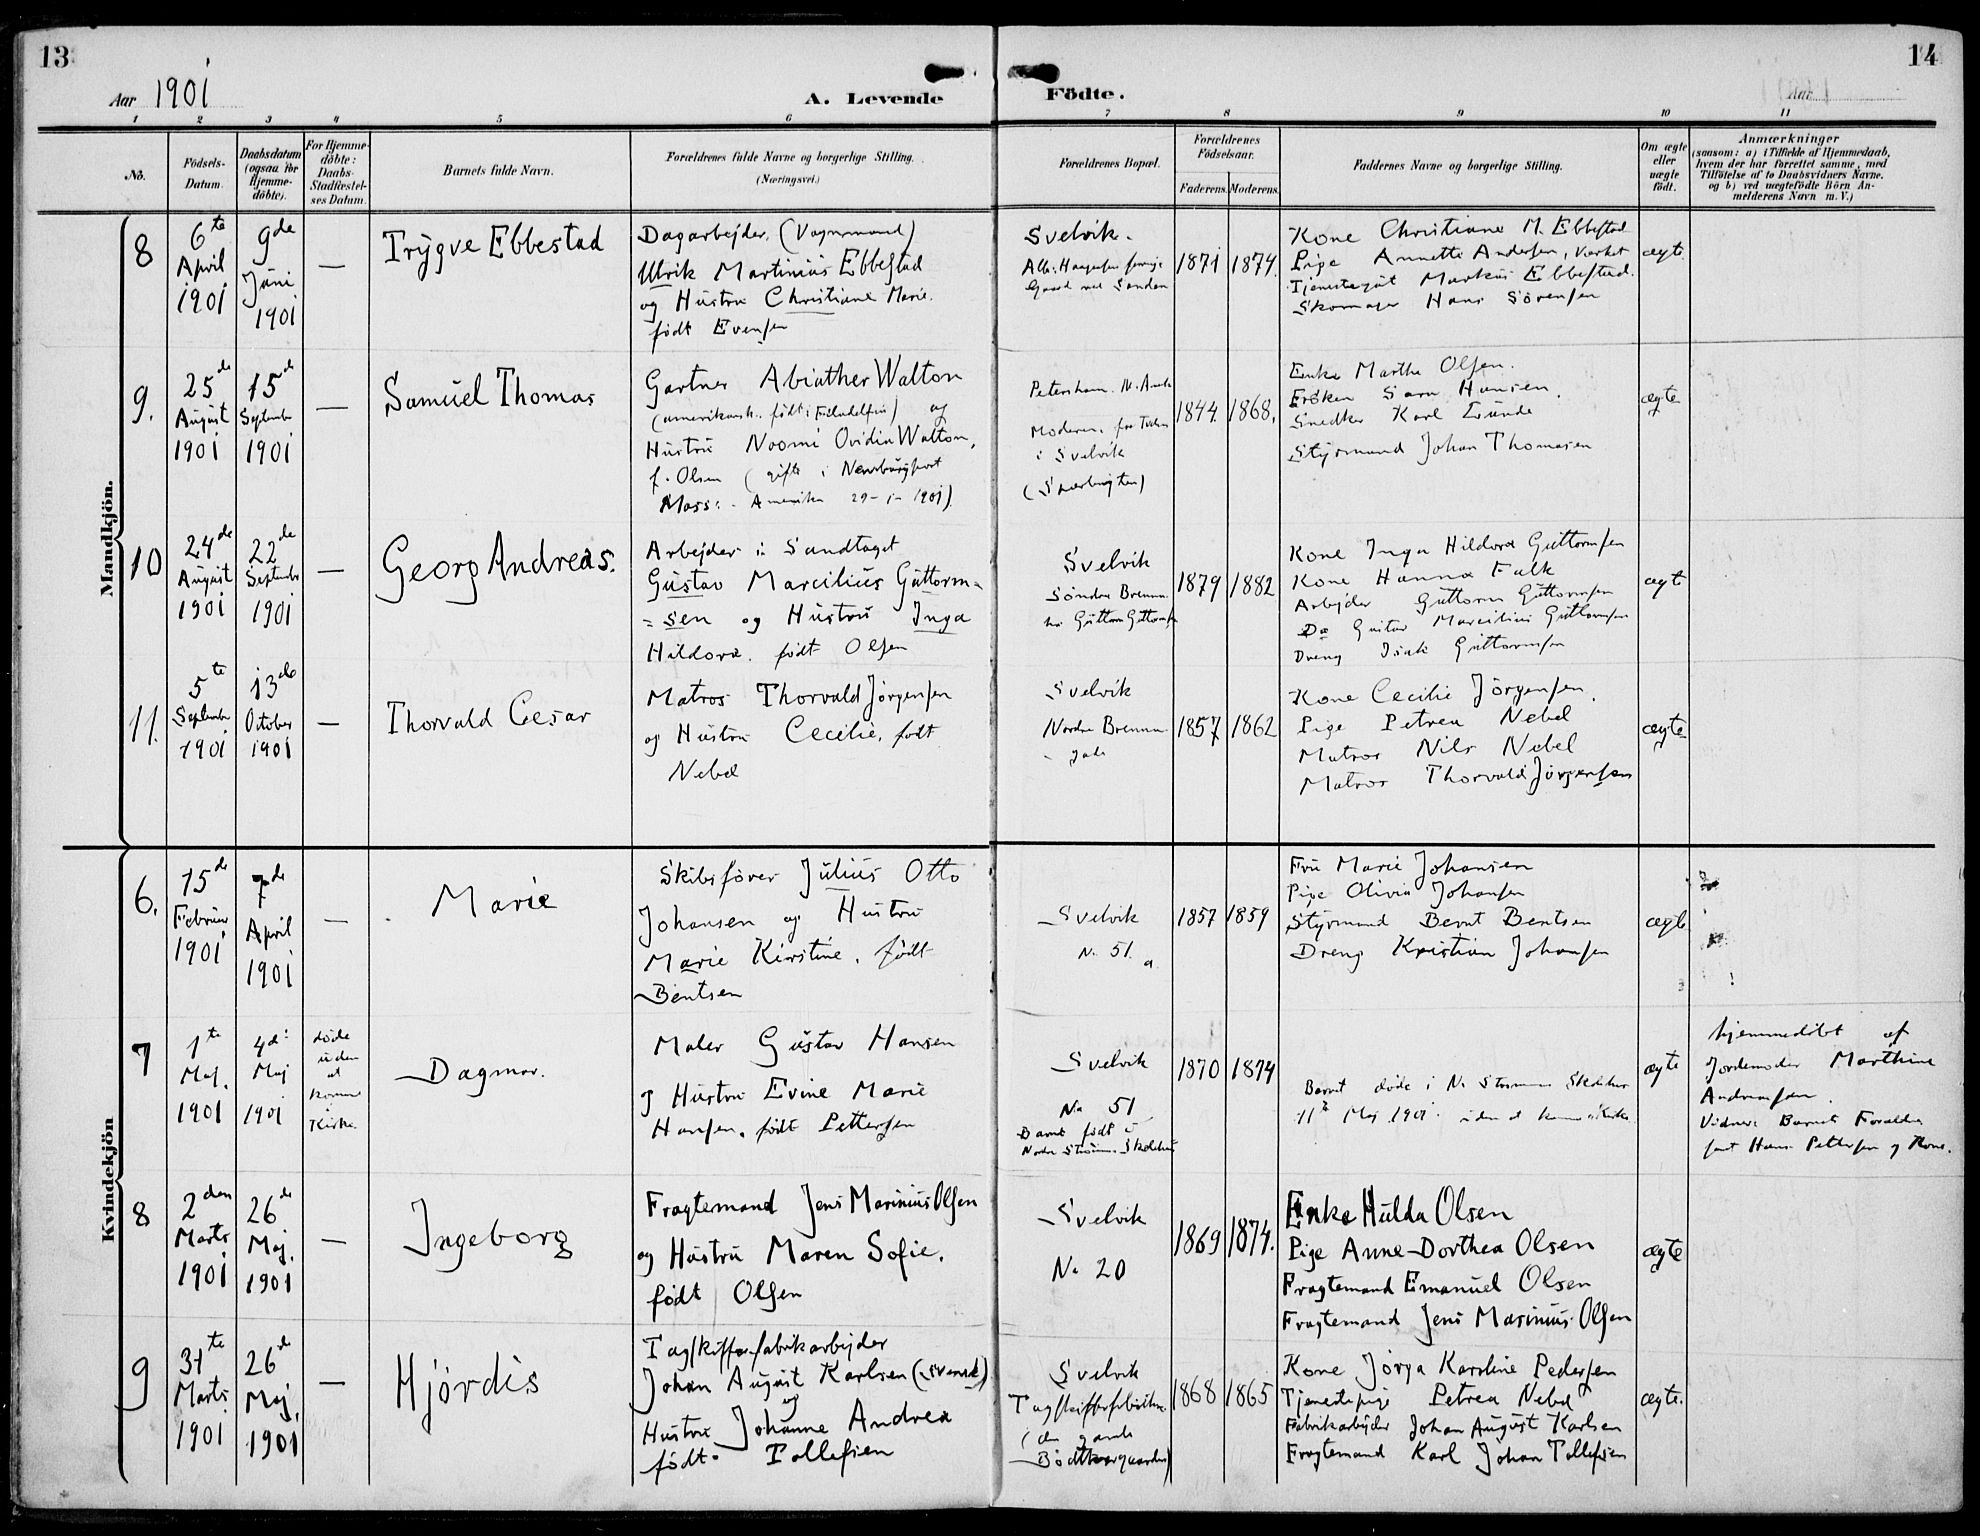 13
14
Aar 1901
A. Levende
Födte.
Aar
1 2 3 4 5 6 7 8 9 10 11
No.
Födsels-
Datum.
Daabsdatum
(ogsaa for
Hjemme-
döbte).
For Hjemme-
döbte:
Daabs-
Stadfæstel-
ses Datum.
Barnets fulde Navn.
Forældrenes fulde Navne og borgerlige Stilling.
(Næringsvei.)
Forældrenes Bopæl.
Forældrenes
Födselsaar.
Faderens.
Moderens.
Faddernes Navne og borgerlige Stilling.
Om ægte
eller
uægte
födt.
Anmærkninger
(saasom: a) i Tilfælde af Hjemmedaab,
hvem der har forrettet samme, med
Tilföielse af to Daabsvidners Navne.
og b) ved uægtefödte Börn An-
melderens Navn m. V.)
Mandkjön.
8
6te
April
1901
9de
Juni
1901
—
Trygve Ebbestad
Dagarbejder. (Vognmand)
Ulrik Martinius Ebbestad
og Hustru Christiane Marie.
født Evensen
Svelvik.
1871
1874.
Kone Christiane M. Ebbestad
Pige Annette Andersen, Værket
Tjenestegut Markus Ebbestad.
Skomager Hans Sörensen
ægte
9.
25de
August
1901
15de
September
1901
—
Samuel Thomas
Gartner Abiather Walton
(amerikansk. født i Filadelfia) og
Hustru Noomi Ovidia Walton,
f. Olsen (gifte i Newburyport
Mass: Amerika 29-1-1901)
Petersham. N. Amk
Moderen. for Tiden
i Svelvik
1844.
1868.
Enke Marthe Olsen.
Frøken Sara Hansen.
Snedker Karl Lunde
Styrmand Johan Thomasen
ægte
10
24de
August
1901
22de
September
1901
—
Georg Andreas.
Arbejder i Sandtaget
Gustav Marcilius Guttorm-
=sen og Hustru Inga
Hildora. født Olsen
Svelvik
Søndre Brenn.
hos Guttorm Guttormsen
1879
1882
Kone Inga Hildora Guttormsen
Kone Hanna Falk
Arbejder Guttorm Guttormsen
Do Gustav Marcilius Guttormsen
Dreng Isak Guttormsen
ægt
11.
5te
September
1901
13de
October
1901
—
Thorvald Cesar
Matros Thorvald Jörgensen
og Hustru Cecilie, født
Nebel
Svelvik
Nordre Brenn
gade
1857
1862
Kone Cecilie Jörgensen.
Pige Petrea Nebel
Matros Nils Nebel
Matros Thorvald Jörgensen
ægte
Kvindekjön
6.
15de
Februar
1901
7de
April
1901
—
Marie
Skibsfører Julius Otto
Johansen og Hustru
Marie Kirstine, født
Bentsen
Svelvik
No 51.
a
1857
1859
Fru Marie Johansen
Pige Olivia Johansen
Styrmand Bernt Bentsen
Dreng Kristian Johansen
ægte
7
1te
Maj.
1901
4de
Maj
1901
døde
uden
at
komme
i
Kirke
Dagmar.
Maler Gustav Hansen
og Hustru Evine Marie
Hansen, født Pettersen
Svelvik
No 51
Barnet født i
Nordre Strømm. Skolehus
1870
1874
Barnet døde i N. Strømm Skolehus
11te Maj 1901. uden at komme i Kirke.
ægte
hjemmedøbt af
Jordemoder Marthine
Andreassen.
Vidner: Barnets Forældre
samt Hans Pettersen og Kone.
8
2den
Marts
1901
26de
Maj.
1901
—
Ingeborg
Fragtemand Jens Marinius Olsen
og Hustru Maren Sofie.
født Olsen
Svelvik
No 20
1869
1874.
Enke Hulda Olsen
Pige Anne-Dorthea Olsen
Fragtemand Emanuel Olsen
Fragtemand Jens Marinius Olsen
ægte
9
31te
Marts
1901
26de
Maj.
1901
—
Hjördis
Tagskifferfabrikarbejder
Johan August Karlsen (svensk)
og
Hustru Johanne Andrea
født. Tollefsen
Svelvik
Tagskifferfabrikken
(den gamle
Bödtkergaarden)
1868
1865
Kone Jörga Karoline Pedersen
Tjenestepige Petrea Nebel
Fabrikarbejder Johan August Karlsen
Fragtemand Karl Johan Tollefsen
ægte.